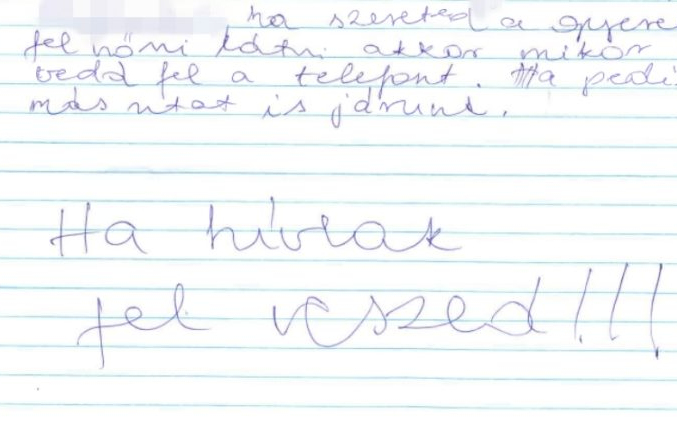 ha szereted a gyere
fel nőni látni akkor mikor
vedd fel a telefont. Ha pedi
más utat is járunk.
Ha hívlak
fel veszed!!!